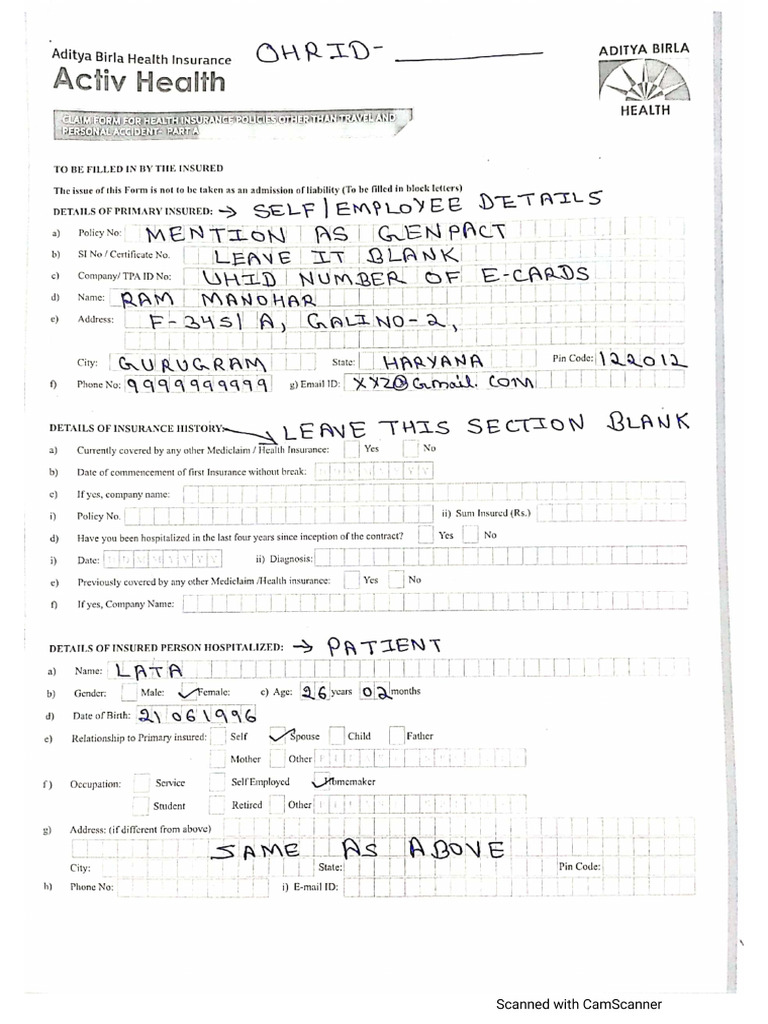 Aditya Birla Health Insurance OHRID- ______
Activ Health
ADITYA BIRLA
HEALTH
CLAIM FORM FOR HEALTH INSURANCE POLICIES OTHER THAN TRAVEL AND
PERSONAL ACCIDENT- PART A
TO BE FILLED IN BY THE INSURED
The issue of this Form is not to be taken as an admission of liability (To be filled in block letters)
DETAILS OF PRIMARY INSURED: → SELF/EMPLOYEE DETAILS
a) Policy No: MENTION AS GENPACT
b) SI No / Certificate No. LEAVE IT BLANK
c) Company/ TPA ID No: UHID NUMBER OF E-CARDS
d) Name: RAM MANOHAR
e) Address: F-345/A, GALINO-2,
City: GURUGRAM State: HARYANA Pin Code: 122012
f) Phone No: 9999999999 g) Email ID: XXZ@Gmail.COM
DETAILS OF INSURANCE HISTORY: → LEAVE THIS SECTION BLANK
a) Currently covered by any other Mediclaim / Health Insurance: Yes No
b) Date of commencement of first Insurance without break:
c) If yes, company name:
i) Policy No. ii) Sum Insured (Rs.)
d) Have you been hospitalized in the last four years since inception of the contract? Yes No
i) Date: ii) Diagnosis:
e) Previously covered by any other Mediclaim /Health insurance: Yes No
f) If yes, Company Name:
DETAILS OF INSURED PERSON HOSPITALIZED: → PATIENT
a) Name: LATA
b) Gender: Male: ✓ Female: c) Age: 26 years 02 months
d) Date of Birth: 21061996
e) Relationship to Primary insured: Self ✓ Spouse Child Father
Mother Other
f) Occupation: Service Self Employed ✓ Homemaker
Student Retired Other
g) Address: (if different from above)
SAME AS ABOVE
City: State: Pin Code:
h) Phone No: i) E-mail ID:
Scanned with CamScanner